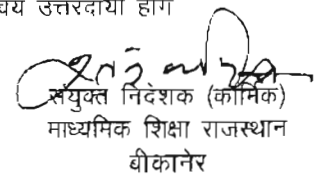 उत्तरदायी होंगे
संयुक्त निदेशक (कार्मिक)
माध्यमिक शिक्षा राजस्थान
बीकानेर